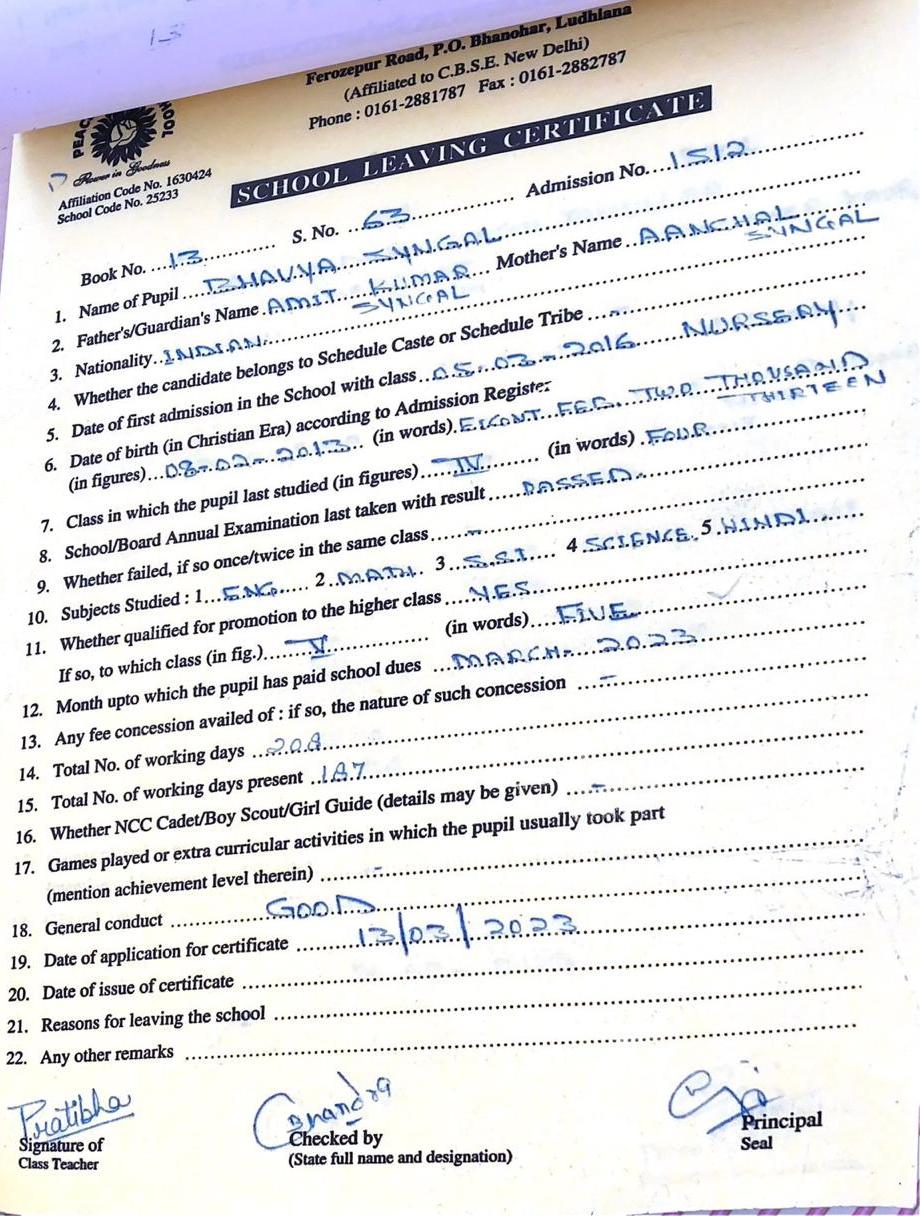 13
Ferozepur Road, P.O. Bhanohar, Ludhiana
(Affiliated to C.B.S.E. New Delhi)
Phone : 0161-2881787 Fax : 0161-2882787
PEAC
Flower in Goodness
Affiliation Code No. 1630424
School Code No. 25233
SCHOOL LEAVING CERTIFICATE
Book No. ...13... S. No. ...63... Admission No. ...1512...
1. Name of Pupil ...BHAVYA SYNGAL...
2. Father's/Guardian's Name .AMIT KUMAR SYNGAL Mother's Name .AANCHAL SYNGAL
3. Nationality ..INDIAN...
4. Whether the candidate belongs to Schedule Caste or Schedule Tribe ...-...
5. Date of first admission in the School with class ..05-03-2016 NURSERY...
6. Date of birth (in Christian Era) according to Admission Register
(in figures) ...08-02-2013... (in words). EIGHT FEB, TWO THOUSAND THIRTEEN
7. Class in which the pupil last studied (in figures) ...IV... (in words) .FOUR...
8. School/Board Annual Examination last taken with result ...PASSED...
9. Whether failed, if so once/twice in the same class ...-...
10. Subjects Studied : 1...ENG... 2..MATH. 3 ..S.ST... 4 .SCIENCE. 5 .HINDI...
11. Whether qualified for promotion to the higher class ...YES...
If so, to which class (in fig.)...V... (in words)...FIVE...
12. Month upto which the pupil has paid school dues ...MARCH-2023...
13. Any fee concession availed of : if so, the nature of such concession ...-...
14. Total No. of working days ...208...
15. Total No. of working days present ...187...
16. Whether NCC Cadet/Boy Scout/Girl Guide (details may be given) ...-...
17. Games played or extra curricular activities in which the pupil usually took part
(mention achievement level therein) ...-...
18. General conduct ...GOOD...
19. Date of application for certificate ...13/03/2023...
20. Date of issue of certificate ...
21. Reasons for leaving the school ...
22. Any other remarks ...
Pratibha
Signature of
Class Teacher
Chandra
Checked by
(State full name and designation)
Principal
Seal